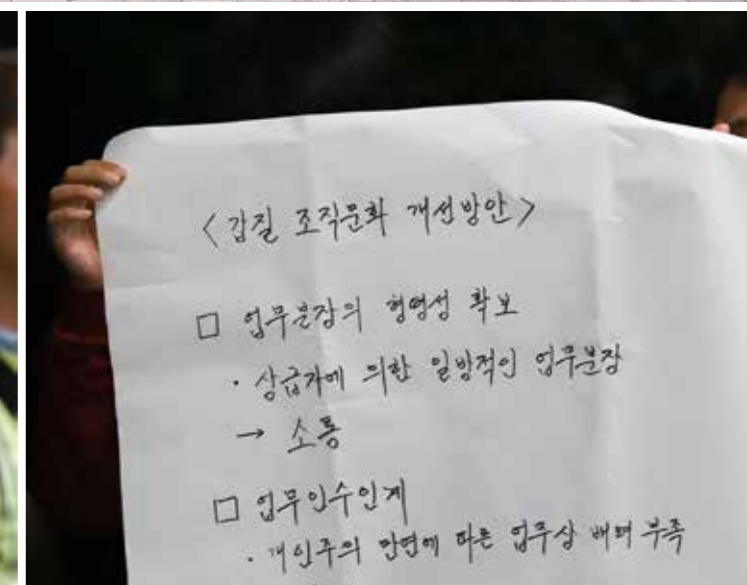 <갑질 조직문화 개선방안>
□ 업무분장의 형평성 확보
· 상급자에 의한 일방적인 업무분장
→ 소통
□ 업무인수인계
· 개인주의 만연에 따른 업무상 배려 부족